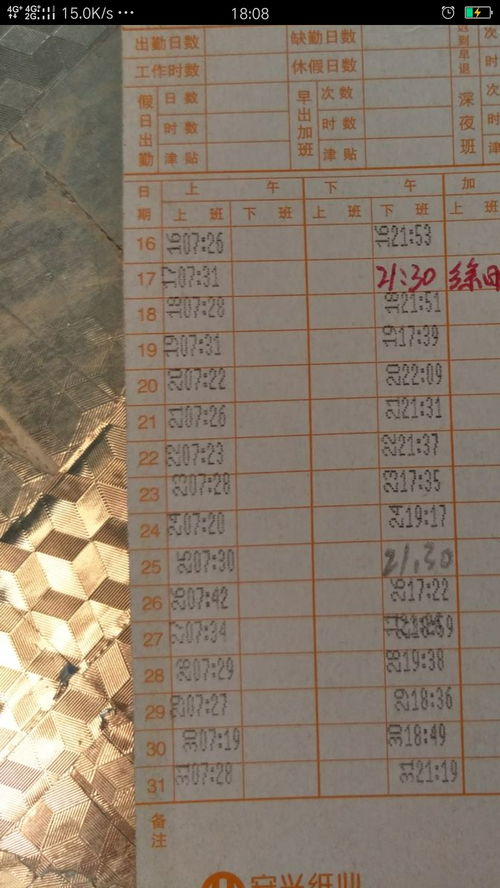 4G+ 4G 2G 15.0K/s ••• 18:08
出勤日数 缺勤日数 次
工作时数 休假日数 时
假日出勤 日数 早出加班 次数 深夜班 次
时数 时数 时
津贴 津贴 津
日期 上午 下午 加
上班 下班 上班 下班 上班
16 16 07:26 16 21:53
17 17 07:31 21:30
18 18 07:28 18 21:51
19 19 07:31 19 17:39
20 20 07:22 20 22:09
21 21 07:26 21 21:31
22 22 07:23 22 21:37
23 23 07:28 23 17:35
24 24 07:20 24 19:17
25 25 07:30 21.30
26 26 07:42 26 17:22
27 27 07:34
28 28 07:29 28 19:38
29 29 07:27 29 18:36
30 30 07:19 30 18:49
31 31 07:28 31 21:19
备注